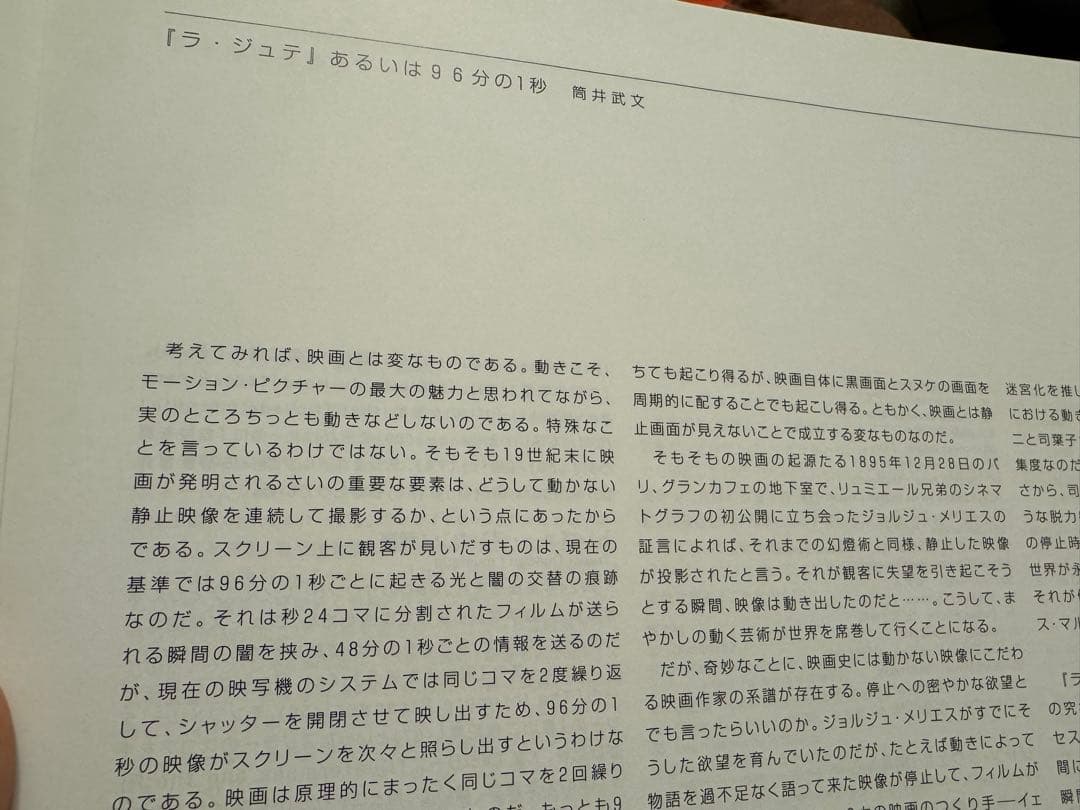 『ラ・ジュテ』あるいは96分の1秒　筒井武文
考えてみれば、映画とは変なものである。動きこそ、
モーション・ピクチャーの最大の魅力と思われてながら、
実のところちっとも動きなどしないのである。特殊なこ
とを言っているわけではない。そもそも19世紀末に映
画が発明されるさいの重要な要素は、どうして動かない
静止映像を連続して撮影するか、という点にあったから
である。スクリーン上に観客が見いだすものは、現在の
基準では96分の1秒ごとに起きる光と闇の交替の痕跡
なのだ。それは秒24コマに分割されたフィルムが送ら
れる瞬間の闇を挟み、48分の1秒ごとの情報を送るのだ
が、現在の映写機のシステムでは同じコマを2度繰り返
して、シャッターを開閉させて映し出すため、96分の1
秒の映像がスクリーンを次々と照らし出すというわけな
のである。映画は原理的にまったく同じコマを2回繰り
ちても起こり得るが、映画自体に黒画面とスヌケの画面を
周期的に配することでも起こし得る。ともかく、映画とは静
止画面が見えないことで成立する変なものなのだ。
そもそもの映画の起源たる1895年12月28日のパ
リ、グランカフェの地下室で、リュミエール兄弟のシネマ
トグラフの初公開に立ち会ったジョルジュ・メリエスの
証言によれば、それまでの幻燈術と同様、静止した映像
が投影されたと言う。それが観客に失望を引き起こそう
とする瞬間、映像は動き出したのだと……。こうして、ま
やかしの動く芸術が世界を席巻して行くことになる。
だが、奇妙なことに、映画史には動かない映像にこだわ
る映画作家の系譜が存在する。停止への密やかな欲望と
でも言ったらいいのか。ジョルジュ・メリエスがすでにそ
うした欲望を育んでいたのだが、たとえば動きによって
物語を過不足なく語って来た映像が停止して、フィルムが
の映画のつくり手―イェ
迷宮化を推し
における動き
二と司葉子
集度なのだ
さから、司
うな脱力
の停止時
世界が永
それが
ス・マル
『ラ
の究
セス
間に
瞬間